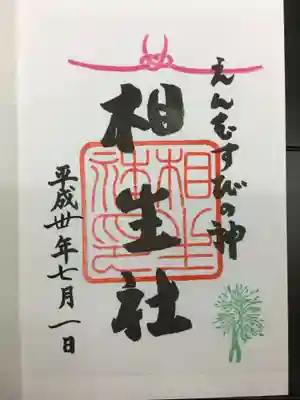 えんむすびの神
相生社
相生社印
平成卅年七月一日